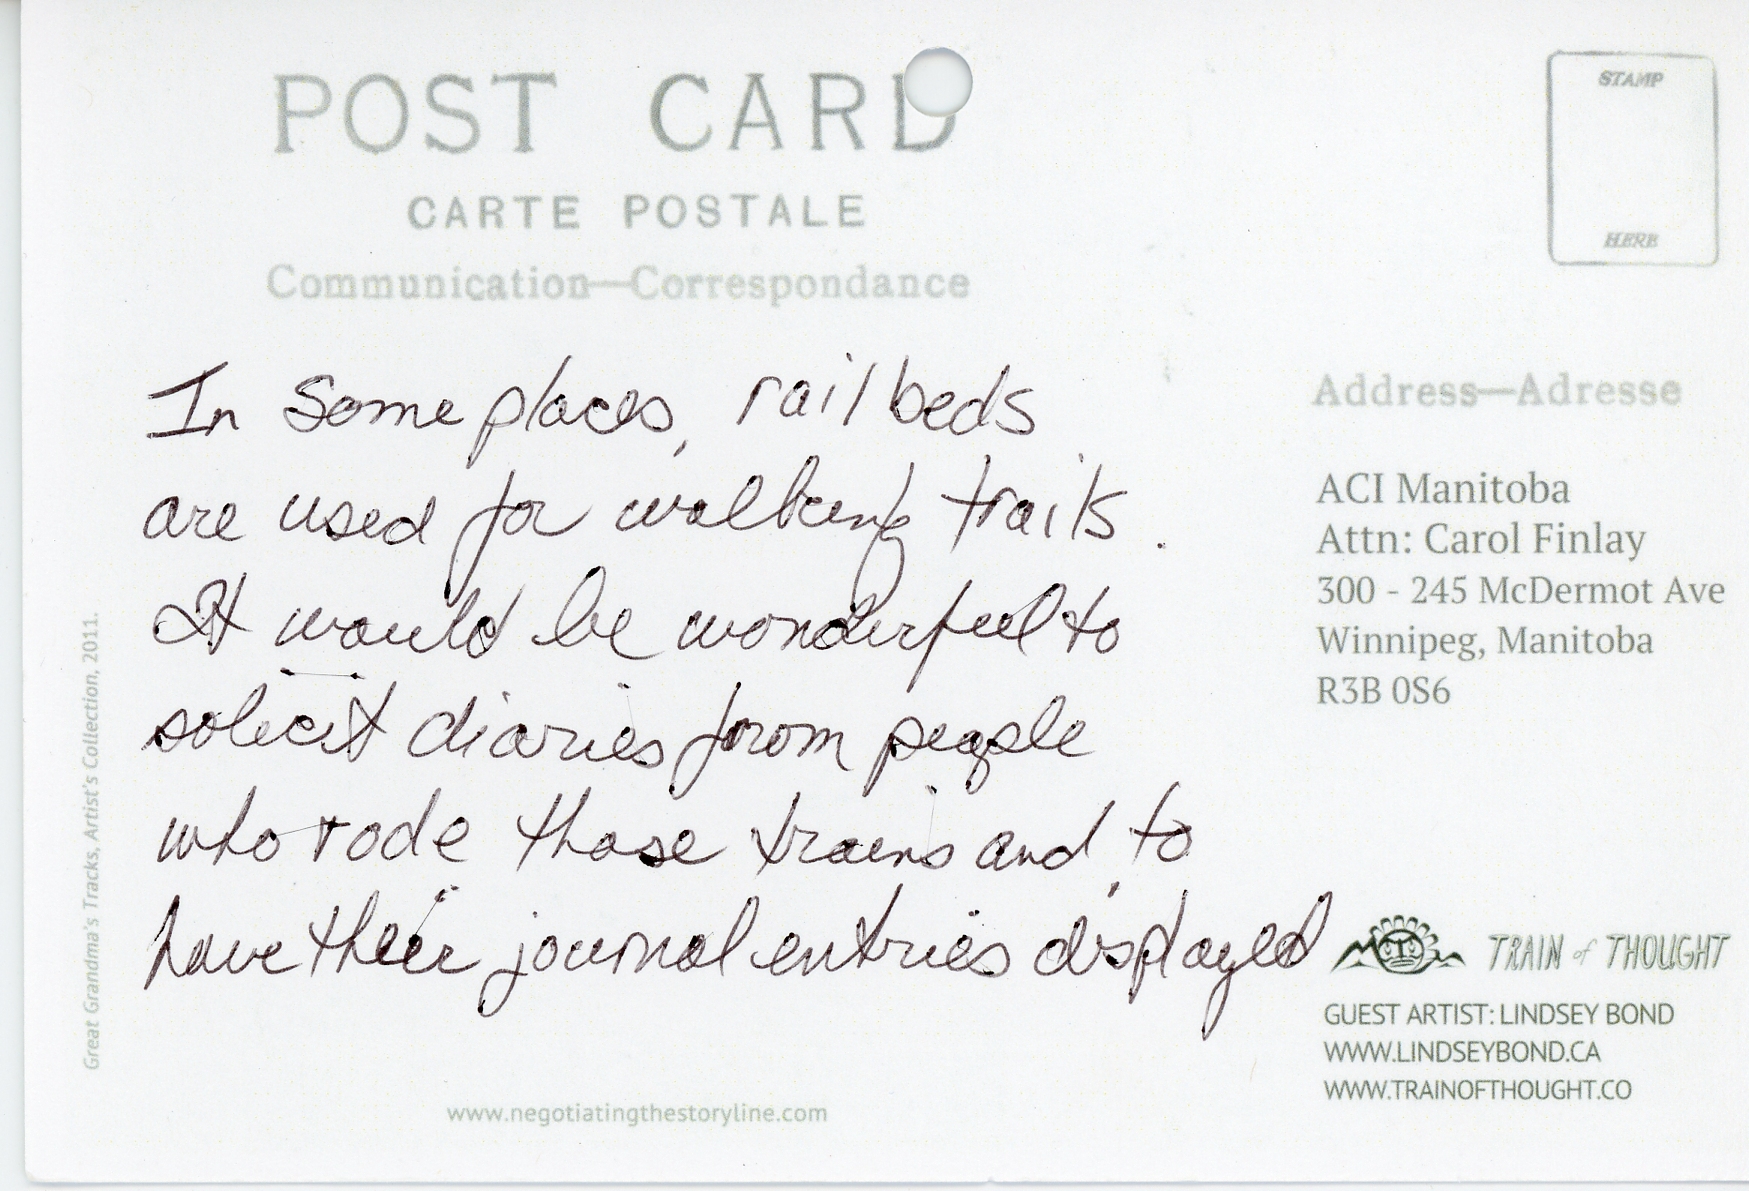 POST CARD
CARTE POSTALE
Communication—Correspondance
STAMP
HERE
In some places, rail beds
are used for walking trails.
It would be wonderful to
solicit diaries from people
who rode those trains and to
have their journal entries displayed
Address—Adresse
ACI Manitoba
Attn: Carol Finlay
300 - 245 McDermot Ave
Winnipeg, Manitoba
R3B 0S6
TRAIN of THOUGHT
GUEST ARTIST: LINDSEY BOND
WWW.LINDSEYBOND.CA
WWW.TRAINOFTHOUGHT.CO
Great Grandma's Tracks, Artist's Collection, 2011.
www.negotiatingthestoryline.com